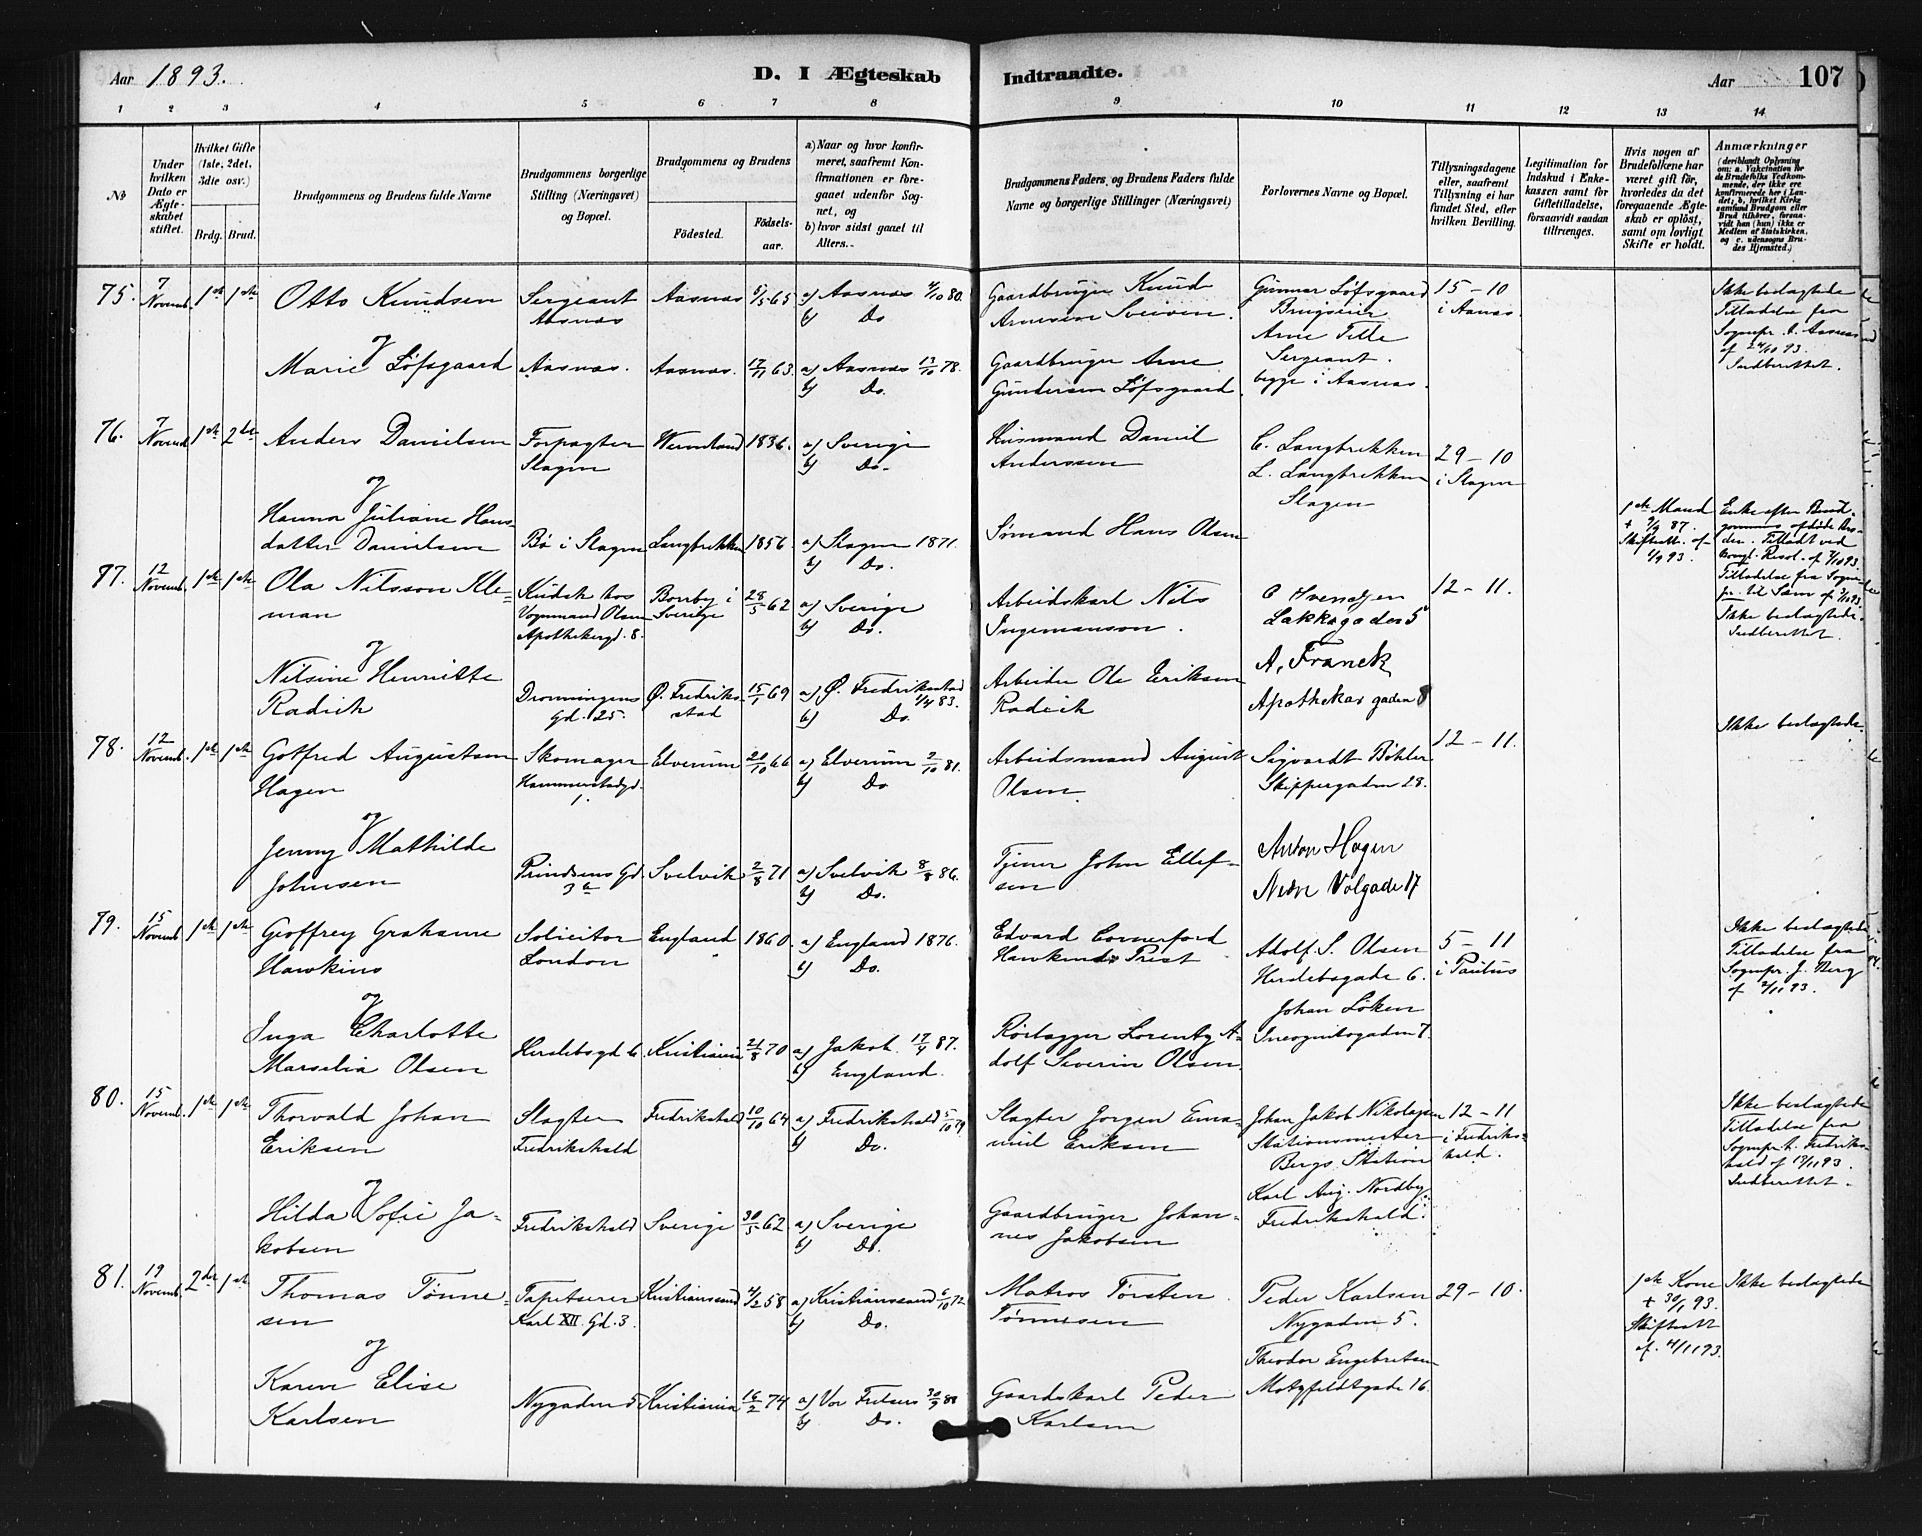 Aar 1893.
D. I Ægteskab
Indtraadte.
Aar
107
1 2 3 4 5 6 7 8 9 10 11 12 13 14
No
Under hvilken Dato er Ægteskabet stiftet.
Hvilket Gifte (1ste, 2det, 3die osv.)
Brdg. Brud.
Brudgommens og Brudens fulde Navne
Brudgommens borgerlige Stilling (Næringsvei) og Bopæl.
Brudgommens og Brudens
Fødested.
Fødsels-aar.
a) Naar og hvor konfirmeret, saafremt Konfirmationen er foregaaet udenfor Sognet, og
b) hvor sidst gaaet til Alters.
Brudgommens Faders og Brudens Faders fulde Navne og borgerlige Stillinger (Næringsvei)
Forlovernes Navne og Bopæl.
Tillysningsdagene eller, saafremt Tillysning ei har fundet Sted, efter hvilken Bevilling.
Legitimation for Indskud i Enkekassen samt for Giftetilladelse, forsaavidt saadan tiltrænges.
Hvis nogen af Brudefolkene har været gift før, hvorledes da det foregaaende Ægteskab er opløst, samt om lovligt Skifte er holdt.
Anmærkninger
(deriblandt Oplysning om: a. Vakcination for de Brudefolks Vedkommende, der ikke ere konfirmerede her i Landet; b. hvilket Kirkesamfund Brudgom eller Brud tilhører, forsaavidt han (hun) ikke er Medlem af Statskirken, og c. udensogns Brudes Hjemsted.)
75. 7 Novemb. 1ste 1ste Otto Knudsen Sergeant Aasnæs Aasnæs 5/5 65 a) Aasnæs 4/10 80. b) Do
Gaardbruger Knud Arnesen Sveiven. Gunnar Løfsgaard Brugseier Arne Titte Sergeant. begge i Aasnæs. 15-10 i Aasnæs
Ikke beslægtede Tilladelse fra Sognepr. t. Aasnæs af 24/10 93. Indberettet.
og
Marie Løfsgaard Aasnæs. Aasnæs. 17/11 63. a) Aasnæs 13/10 78. b) Do.
Gaardbruger Arne Gundersen Løfsgaard
76. 7 Novemb 1ste 2det Anders Danielsen Forpagter Slagen Wermland 1836. a) Sverige b) Do.
Husmand Daniel Anderssen C. Langbrekken L. Langbrekken Slagen 29-10 i Slagen
og
Hanna Juliane Hansdatter Danielsen Bø i Slagen Langbrekken 1856. a) Slagen 1871. b) Do.
Sømand Hans Olsen
1ste Mand + 9/9 87. Skifteatt. af 1/9 93.
Enke efter Brudgommens afdøde Broder. Tilladt ved Kongl. Resol. af 7/10 93. Tilladelse fra Sognepr. til Sæm af 3/10 93. Ikke beslægtede. Indberettet.
77. 12 Novemb. 1ste 1ste Ola Nilsson Kleman Kudsk hos Vognmand Olsen Apothekergd. 8. Borrby i Sverige 28/5 62 a) Sverige b) Do.
Arbeidskarl Nils Ingemanson. O Svendsen Lakkegaden 5 12-11.
og
Nilsine Henriette Radich Dronningens Gd. 25. Ø. Fredrikstad 15/1 69 a) Ø. Fredrikstad 1/4 83. b) Do.
Arbeider Ole Eriksen Radich A. Franck Apothekergaden 8
78. 12 Novemb. 1ste 1ste Gotfred Augustsen Hagen Skomager Hammerstadgd. 1. Elverum 20/10 66 a) Elverum 2/10 81. b) Do
Arbeidsmand August Olsen. Sigvardt Bøhler Skippergaden 28. 12-11.
Ikke beslægtede.
og
Jenny Mathilde Johnsen Prindsens Gd. 3a Svelvik 2/8 71 a) Svelvik 8/8 86. b) Do.
Tjener John Ellefsen Anton Hagen Nedre Volgade 17
79. 15 Novemb 1ste 1ste Geoffrey Grahame Hawkins Solicitor London England 1860. a) England 1876. b) Do.
Edvard Comerford Hawkins Prest Adolf S. Olsen Herslebsgade 6. 5-11 i Paulus
Ikke beslægtede Tilladelse fra Sognepr. J. Berg af 2/11 93.
og
Inga Charlotte Marselia Olsen Herslebsgd 6 Kristiania 21/8 70 a) Jakob 17/4 87. b) England.
Rørlægger Lorentz Adolf Severin Olsen Johan Løken Incognitogaden 7.
80. 15 Novemb. 1ste 1ste Thorvald Johan Eriksen Slagter Fredrikshald Fredrikshald 10/10 64 a) Fredrikshald 5/10 79 b) Do.
Slagter Jørgen Emanuel Eriksen Johan Jakob Nikolaysen Stationsmester Bergs Station 12-11 i Fredrikshald.
Ikke beslægtede Tilladelse fra Sognepr. t. Fredrikshald af 13/11 93. Indberettet.
og
Hilda Sofie Jakobsen Fredrikshald Sverige 30/5 62 a) Sverige b) Do.
Gaardbruger Johannes Jakobsen Karl Aug. Nordby. Fredrikshald.
81. 19 Novemb. 2det 1ste Thomas Tønnesen Tapetserer Karl XII. Gd. 3. Kristianssand 4/2 58 a) Kristianssand 6/10 72 b) Do.
Matros Torsten Tønnesen Peder Karlsen Nygaden 5. 29-10.
1ste Kone + 30/1 93. Skifteatt af. 4/11 93.
Ikke beslægtede
og
Karen Elise Karlsen Nygaden 5 Kristiania 16/2 74 a) Vor Frelsers 30/9 88 b) Do.
Gaardskarl Peder Karlsen Theodor Engebretsen Motzfeldtgade 16.